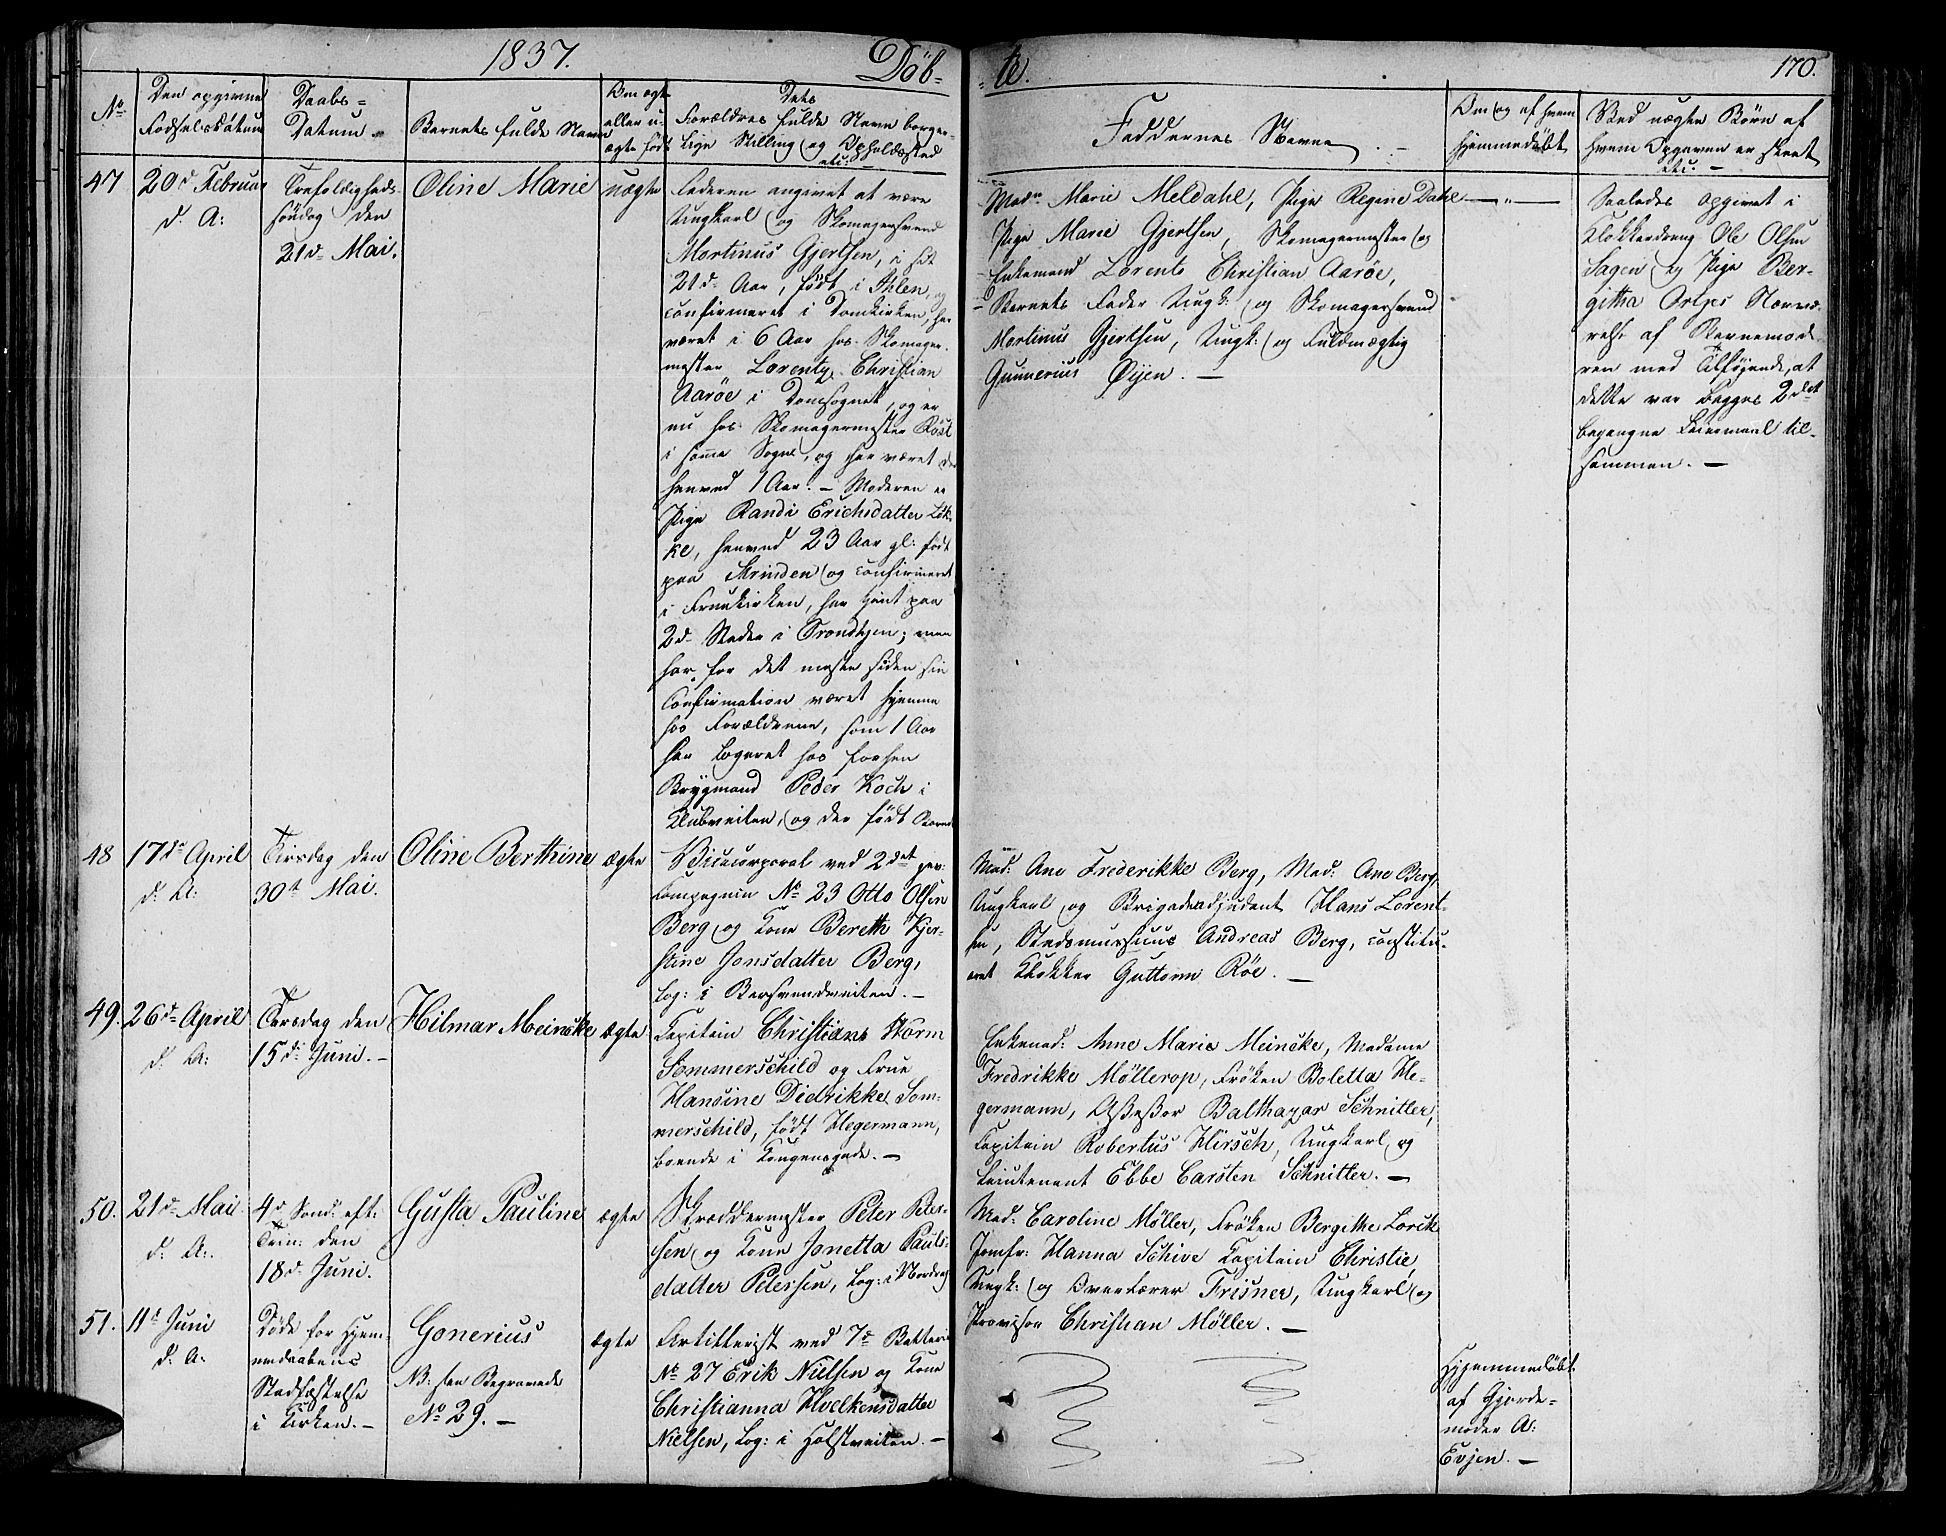 1837.
Døb-
te.
170.
No
Den opgivne
Fødselsdatum
Daabs=
Datum
Barnets fulde Navn
Om ægte
eller u-
ægte født
Dets
Forældres fulde Navn borger-
lige Stilling og Opholdssted
etc.
Faddernes Navne
Om og af hvem
hjemmedøbt
Ved uægte Børn af
hvem Opgaven er skeet
etc. -
47
20d Februar
d. A:
Trefoldigheds
søndag den
21d Mai.
Oline Marie
uægte
Faderen angivet at være
Ungkarl og Skomagersvend
Mortinus Gjertsen, i sit
21d Aar, født i Ihlen, og
confirmeret i Domkirken, har
været i 6 Aar hos Skomager-
mester Lorentz Christian
Aarøe i Domsognet, og er
nu hos Skomagermester Röst
i samme Sogn, og har været der
henved 1 Aar. - Moderen er
Pige Randi Erichsdatter Løk-
ke, henved 23 Aar gl: født
paa Strinden og confirmeret
i Fruekirken, har tjent paa
2d Steder i Trondhjem; men
har for det meste siden sin
Confirmation været hjemme
hos Forældrene, som 1 Aar
har logeret hos forhen
Brygmand Peder Koch i
Klubveiten, og der født Barnet
Madm Marie Meldahl, Pige Regine Dahl
Pige Marie Gjertsen, Skomagermester og
Enkemand Lorents Christian Aarøe,
Barnets Fader Ungk: og Skomagersvend
Mortinus Gjertsen, Ungk: og Fuldmægtig
Gunnerius Øijen. -
- „ -
Saaledes opgivet i
Klokkerdreng Ole Olsen
Sagen og Pige Ber-
githa Nærvæ-
relse af Barnemode-
ren med Tilføjende, at
dette var begges 2det
begangne Leiermaal til-
sammen. -
48
17de April
d: A:
Tirsdag den
30t Mai.
Oline Berthine
ægte
Vicecorporal ved 2det gev:
Compagnie No 23 Otto Olsen
Berg og Kone Bereth Kjer-
stine Jonsdatter Berg,
Log: i Bersvendveiten. -
Mad: Ane Frederikke Berg, Mad: Ane Berg,
Ungkarl og Brigadeadjudent Hans Lorent-
sen, Andreas Berg, constitu-
eret Klokker Guttorm Röe. -
49.
26d April
d: A:
Torsdag den
15d Juni. -
Hilmar Meincke
ægte
Capitain Christians Storm
Sommerschild og Frue
Hansine Diedrikke Som-
merschild, født Hegermann,
boende i Kongensgade. -
Enkemad: Anne Marie Meincke, Madame
Fredrikke Möllerop, Frøken Boletta He-
germann, Assessor Balthazar Schnitler,
Capitain Robertus Hirsch, Ungkarl og
Lieutenant Ebbe Carsten Schnitler. -
50.
21d Mai
d: A:
4d Sönd: eft:
Trin: den
18d Juni.
Gusta Pauline
ægte
Skræddermester Peter Peter-
sen og Kone Jonetta Pauls-
datter Petersen, Log: i Nordreg
Mad: Caroline Möller, Frøken Bergithe Lorck
Jomfr: Hanna Schive Capitain Christie,
Ungk: og Overlærer Frisner, Ungkarl og
Provisor Christian Möller. -
51.
11d Juni
d: A:
Døde før Hjem-
medaabens
Stadfæstelse
i Kirken. -
Gonerius
NB: see Begravede
No 29. -
ægte
Artillerist ved 7e Batterie
No 27 Erik Nielsen og Kone
Christianna Hvelkensdatter
Nielsen, Log: i Holstveiten. -
Hjemmedøbt
af Gjorde-
moder A:
Evjen. -